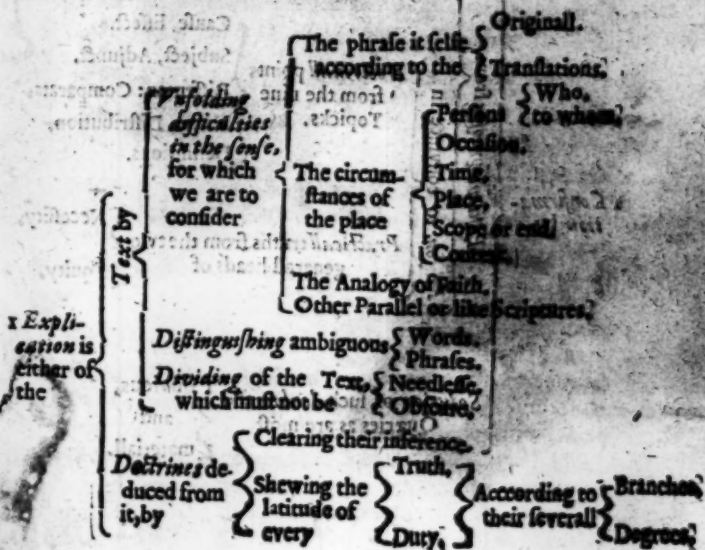 1 Expli-
cation is
either of
the
Text by
Unfolding
difficulties
in the sense,
for which
we are to
consider
The phrase it selfe
according to the
Originall.
Translations.
The circum-
stances of
the place
Persons
Who.
to whom.
Occasion.
Time.
Place.
Scope or end.
Context.
The Analogy of Faith.
Other Parallel or like Scriptures.
Distinguishing ambiguous
Words.
Phrases.
Dividing of the Text,
which must not be
Needlesse.
Obscure.
Doctrines de-
duced from
it, by
Clearing their inference.
Shewing the
latitude of
every
Truth.
Duty,
Acccording to
their severall
Branches.
Degrees.